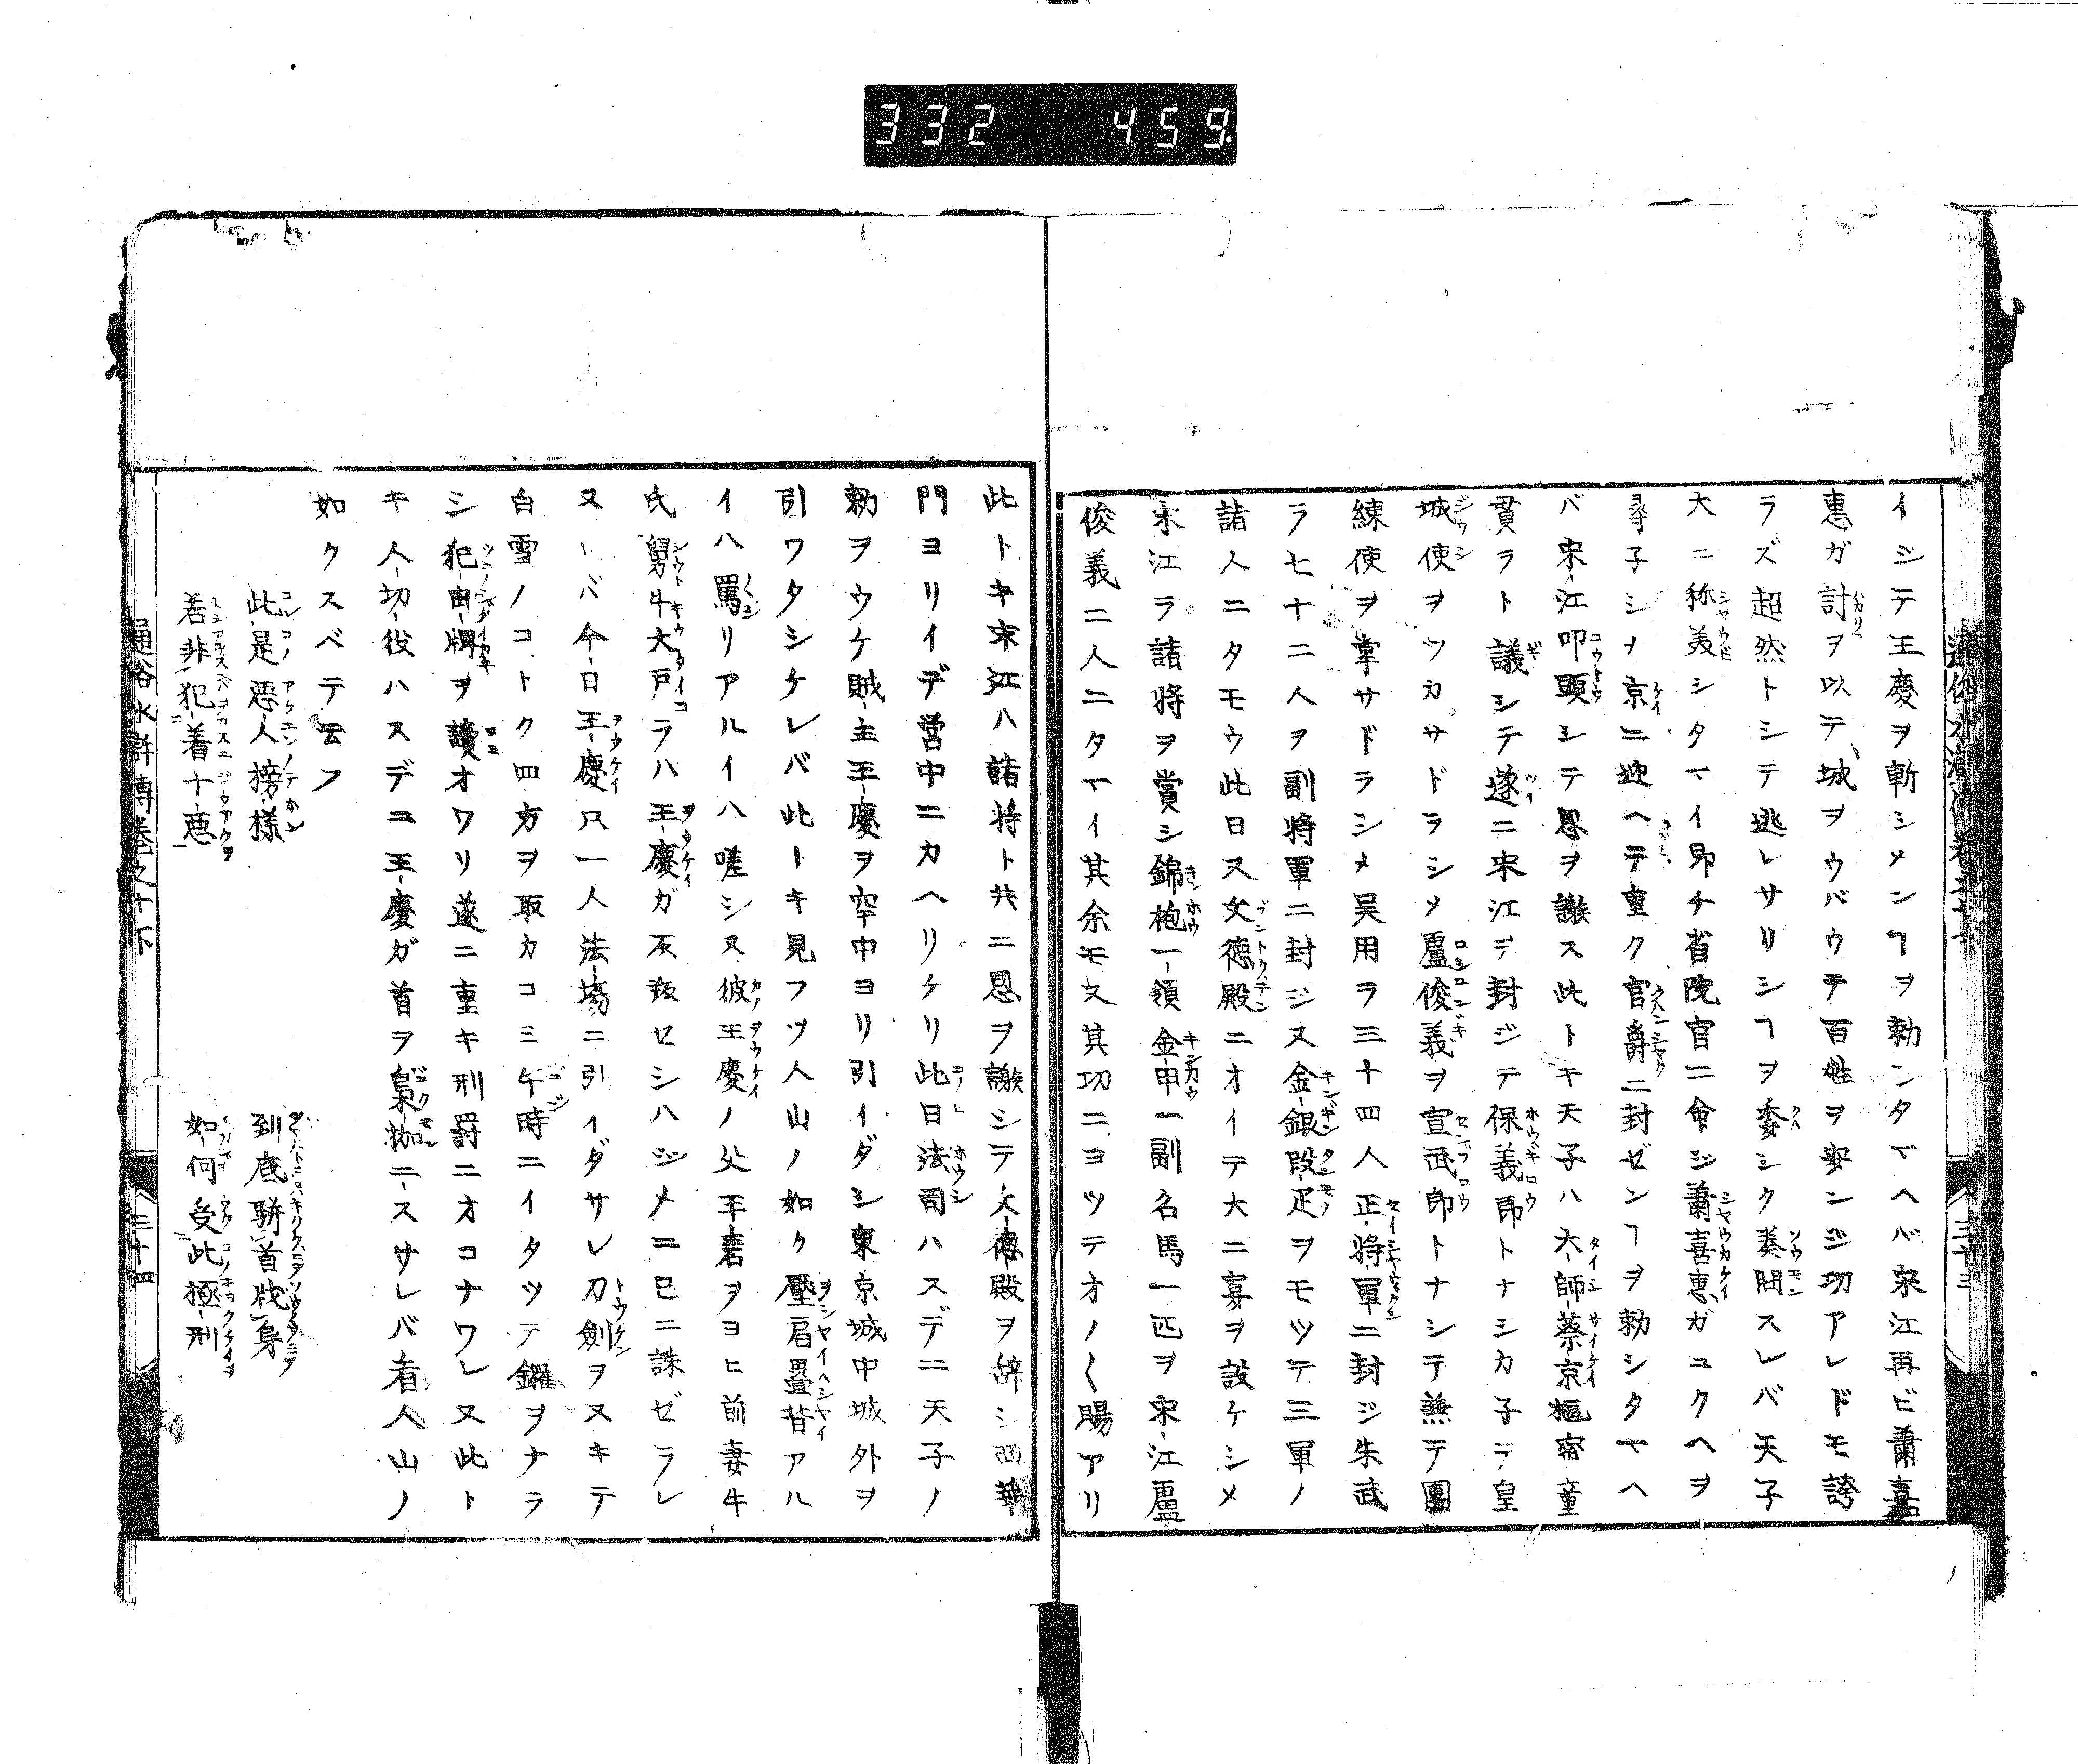 332 459
イシテ王慶ヲ斬シメンヿヲ勅シタマヘバ宋江再ビ蕭嘉
惠ガ討ヲ以テ城ヲウバウテ百姓ヲ安ンジ功アレドモ誇
ラズ超然トシテ逃レサリシヿヲ委シク奏聞スレバ天子
大ニ称美シタマイ即チ省院官ニ命ジ蕭喜惠ガユクヘヲ
尋子シメ京ニ迎ヘテ重ク官爵ニ封ゼンヿヲ勅シタマヘ
バ宋江叩頭シテ恩ヲ謝ス此トキ天子ハ大師蔡京樞密童
貫ラト議シテ遂ニ宋江ヲ封ジテ保義郎トナシカ子テ皇
城使ヲツカサドラシメ盧俊義ヲ宣武郎トナシテ兼テ團
練使ヲ掌サドラシメ吴用ラ三十四人正将軍ニ封ジ朱武
ラ七十二人ヲ副将軍ニ封ジ又金銀段疋ヲモツテ三軍ノ
諸人ニタモウ此日又文徳殿ニオイテ大ニ宴ヲ設ケシメ
宋江ラ諸将ヲ賞シ錦袍一領金甲一副名馬一匹ヲ宋江盧
俊義二人ニタマイ其余モ又其功ニヨツテオノ〱賜アリ
此トキ宋江ハ諸将ト共ニ恩ヲ謝シテ文德殿ヲ辞シ西華
門ヨリイデ営中ニカヘリケリ此日法司ハスデニ天子ノ
勅ヲウケ賊主王慶ヲ牢中ヨリ引イダシ東京城中城外ヲ
引ワタシケレバ此トキ見フツ人山ノ如ク壓肩疊背アル
イハ罵リアルイハ嗟シ又彼王慶ノ父王砉ヲヨヒ前妻牛
氏舅牛大戸ラハ王慶ガ反叛セシハジメニ已ニ誅ゼラレ
ヌレバ今日王慶只一人法場ニ引イダサレ刀劍ヲヌキテ
白雪ノコトク四方ヲ取カコミ午時ニイタツテ鑼ヲナラ
シ犯由牌ヲ讀オワリ遂ニ重キ刑罰ニオコナワレ又此ト
キ人切役ハスデニ王慶ガ首ヲ梟
ニスサレバ看人山ノ
如クスベテ云フ
此是悪人榜様 到底駢首戕身
若非犯着十悪 如何受此極刑
通俗水滸傳巻之十下 三十四